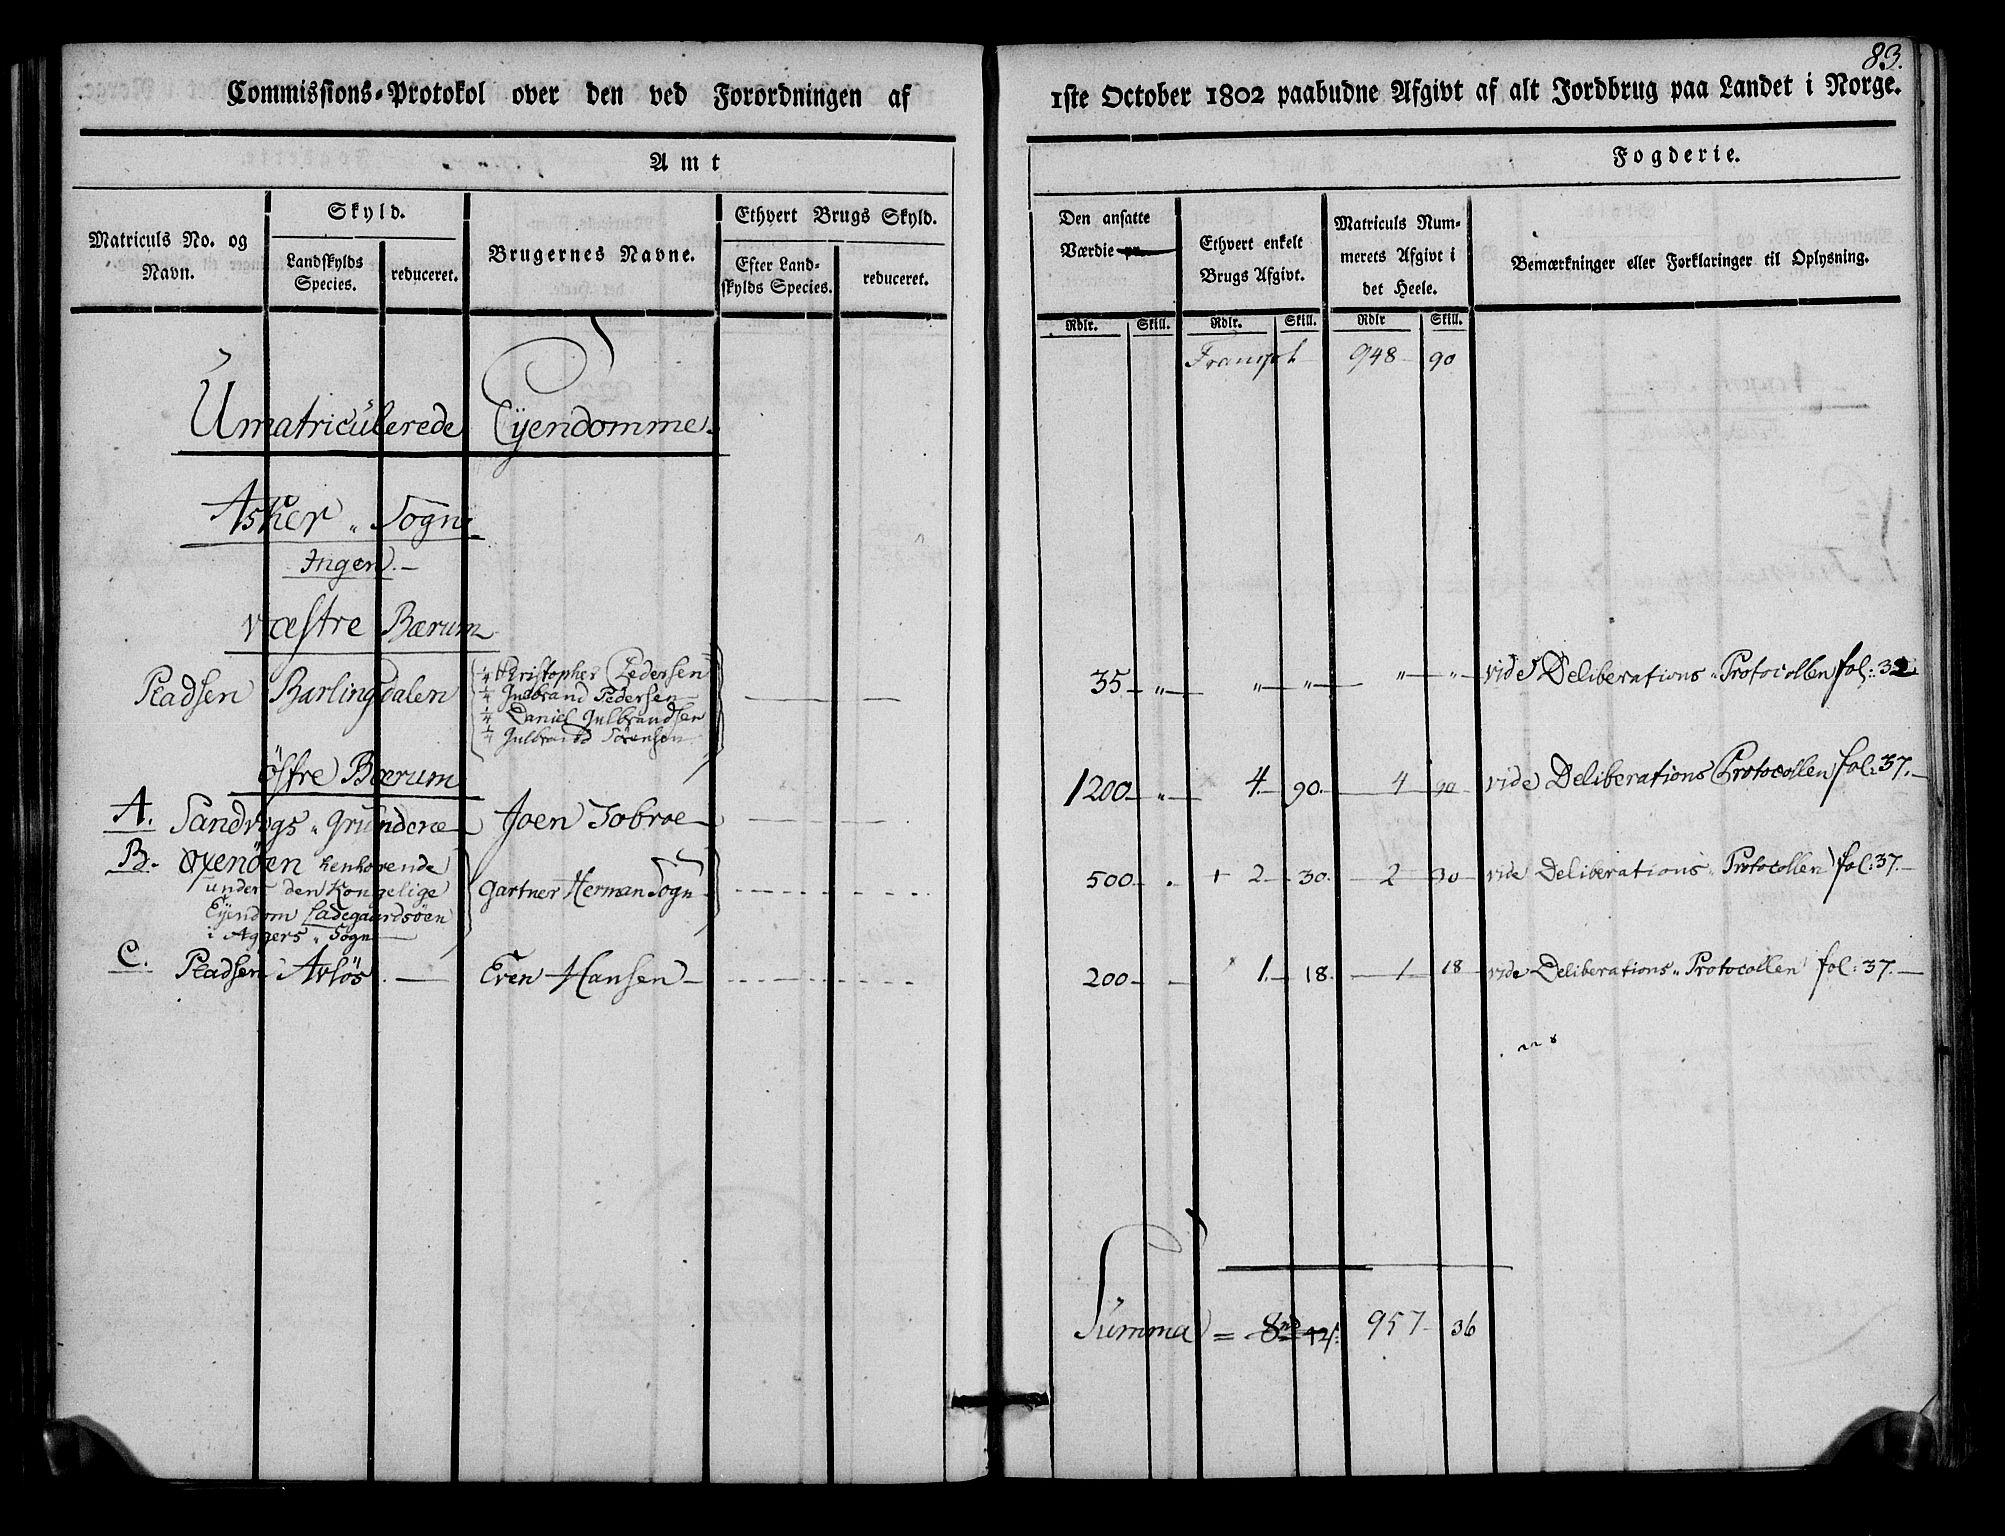 83.
Commissions-Protokol over den ved Forordningen af
1ste October 1802 paabudne Afgivt af alt Jordbrug paa Landet i Norge.
Amt
Fogderie.
Matriculs No. og
Navn.
Skyld.
Landskylds
Species.
reduceret.
Brugernes Navne.
Ethvert Brugs Skyld.
Efter Land-
skylds Species.
reduceret.
Den ansatte
Værdie pr.
Ethvert enkelt
Brugs Afgivt.
Matriculs Num-
merets Afgivt i
det Heele.
Bemærkninger eller Forklaringer til Oplysning.
Rdlr. Skill. Rdlr. Skill. Rdlr Skill.
Transpt 948 90
Umatriculerede Eyendomme.
Asker Sogn
Ingen.
væstre Bærum
Pladsen Barlingdalen
1/4 Christopher Pedersen
1/4 Gulbrand Pedersen
1/4 Daniel Gulbrandsen
1/4 Gulbrand Sørensen
35 " " " " " vide Deliberations Protocollen fol: 32
østre Bærum
A. Sandvigs Grunderne Joen Tobroe
1200 " 4 90 4 90 vide Deliberations Protocollen fol: 37.
B. Oxenöen henhørende
under den Kongelige
Eyendom Ladegaardsöen
i Aggers Sogn
Gartner Herman Sogn
500 2 30 2 30 vide Deliberations Protocollen fol: 37.
C. Pladsen Avlös Even Hansen
200 1 18 1 18 vide Deliberations Protocollen fol: 37.
Summa = 8 rd 42 s. 957 36